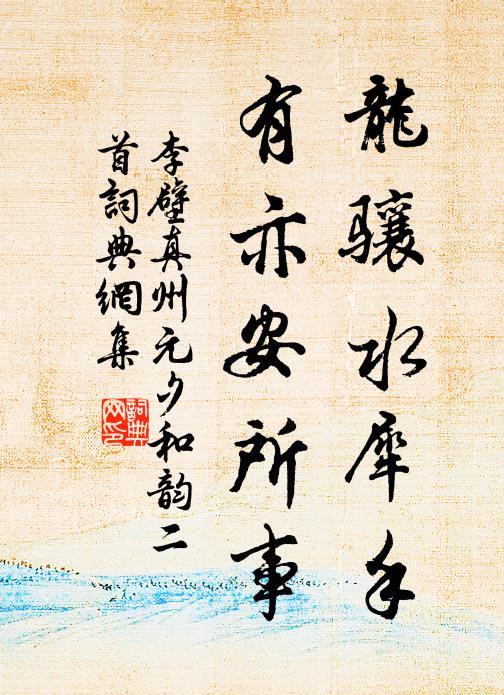 龍驤水犀手
有亦安所事
李壁真州元夕和韵二
首詞典網集
詞典
网印